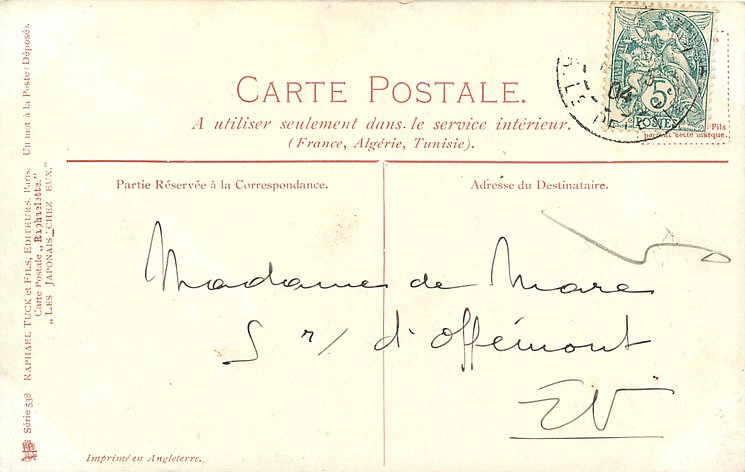 CARTE POSTALE.
A utiliser seulement dans le service intérieur.
(France, Algérie, Tunisie).
Partie Réservée à la Correspondance.
Adresse du Destinataire.
5c
POSTES
04
Fils
portent cette marque.
Madame de Mare
5 r/ d'Offémont
EV
Imprimé en Angleterre.
Série 538 RAPHAEL TUCK et FILS, EDITEURS, Paris. Un mot à la Poste (Déposé).
Carte Postale „Raphaelette."
„LES JAPONAIS CHEZ EUX."